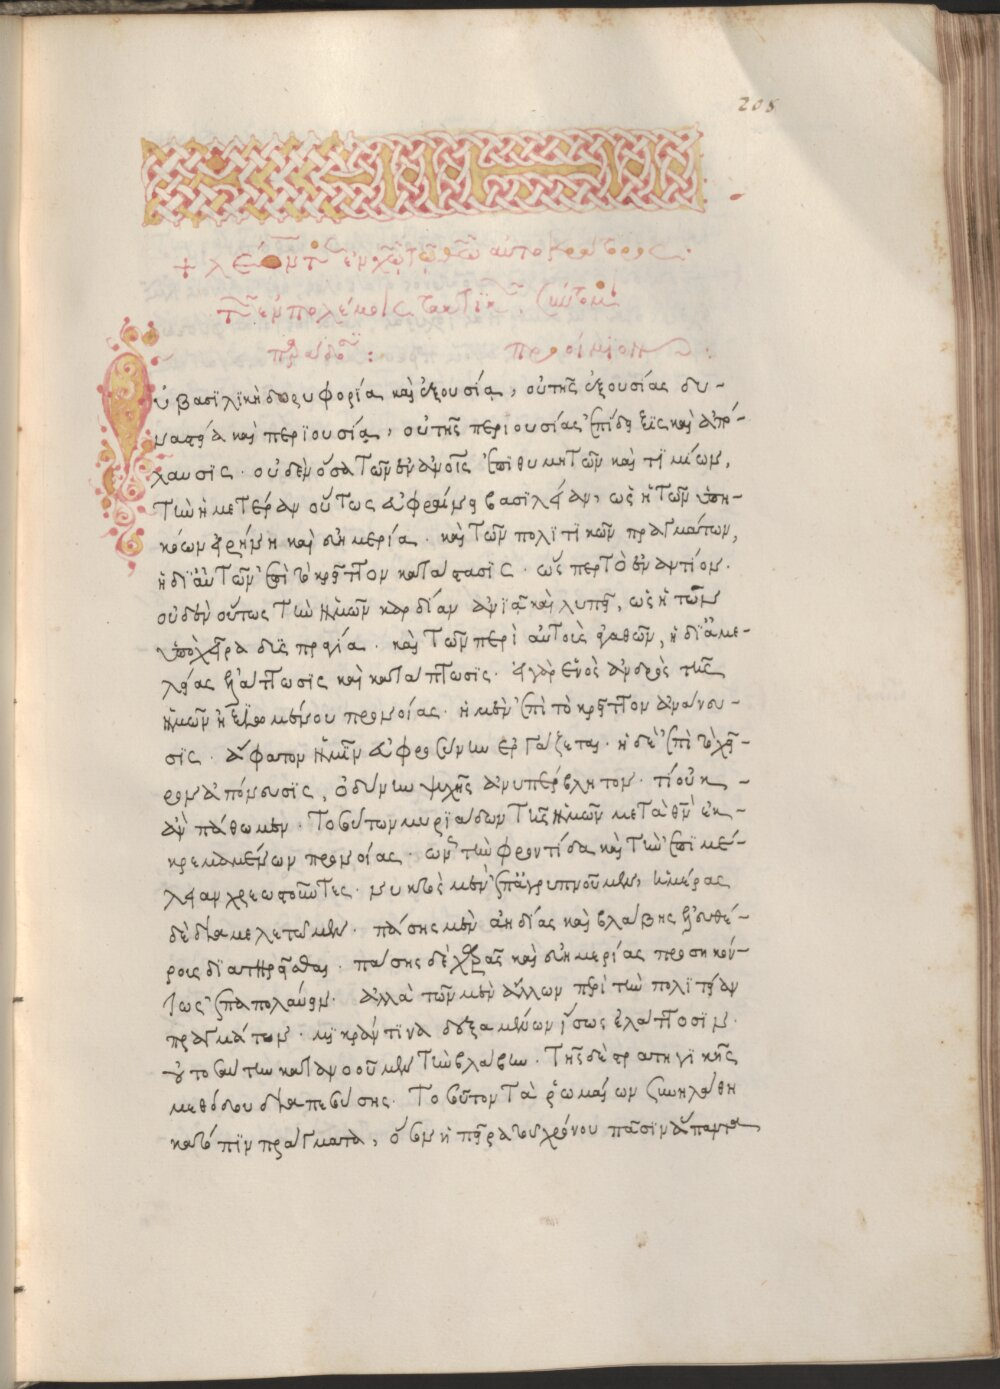 205
+ λέοντος ἐν χῶ τῶ θῶ αὐτοκράτορος.
τῶν ἐν πολέμοις τακτικῶν, σύντομος
παράδοσις: προοίμιον:
ὐ βασιλικὴ δορυφορία καὶ ἐξουσία, οὐ τῆς ἐξουσίας δυ-
ναστεία καὶ περιουσία, οὐ τῆς περιουσίας ἐπίδειξις καὶ ἀπό-
λαυσις. οὐδὲν ὅσα τῶν ἐν ἀνοις ἐπιθυμητῶν καὶ τιμίων,
τὴν ἡμετέραν οὕτως εὐφραίνει βασιλείαν, ὡς ἡ τῶν ὑπη-
κόων εἰρήνη καὶ εὐημερία. καὶ τῶν πολιτικῶν πραγμάτων,
ἡ δι αὐτῶν ἐπὶ τὸ κρεῖττον κατάστασις. ὥσπερ τὸ ἐναντίον.
οὐδὲν οὕτως τὴν ἡμῶν καρδίαν ἀνιᾶ καὶ λυπεῖ, ὡς ἡ τῶν
ὑποχειρα δυσπραγία. καὶ τῶν περὶ αὐτοὺς ἀγαθῶν, ἡ δι ἀμε-
λείας ἐλάττωσις καὶ κατάπτωσις. εἰ γὰρ ἑνὸς ἀνδρὸς τῆς
ἡμῶν ἠξιωμένου προνοίας. ἡ μὲν ἐπὶ τὸ κρεῖττον ἀνάνευ-
σις. ἄφατον ἡμῖν εὐφροσύνην ἐργάζεται. ἡ δὲ ἐπὶ τὸ χεῖ-
ρον ἀπόνευσις, ὀδύνην ψυχῆς ἀνυπέρβλητον. τί οὐκ
ἂν πάθωμεν. τοσούτων μυριάδων τῆς ἡμῶν μετὰ θν ἐκ-
κρεμαμένων προνοίας. ὧν τὴν φροντίδα καὶ τὴν ἐπιμέ-
λειαν χρεωστοῦντες. νυκτὸς μὲν ἐπαγρυπνοῦμεν, ἡμέρας
δὲ διαμελετῶμεν. πάσης μὲν ἀηδίας καὶ βλάβης ἐλευθέ-
ρους διατηρεῖσθαι. πάσης δὲ χαρᾶς καὶ εὐημερίας προσηκόν-
τως ἐπαπολαύειν. ἀλλὰ τῶν μὲν ἄλλων περὶ τὴν πολιτείαν
πραγμάτων. μικράν τινα δυξαμένων ἴσως ἐλάττωσιν.
τοσαύτην κατανοοῦμεν τὴν βλάβην. τῆς δὲ στρατηγικῆς
μεθόδου διαπεσούσης. τοσοῦτον τὰ ῥωμαίων συνηλάθη
κατόπιν πράγματα, ὅσον ἡ πεῖρα τοῦ χρόνου πᾶσιν ἅπαντα